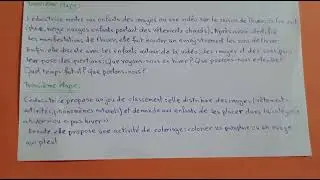 Deuxième étape:
L'éducatrice montre aux enfants des images ou une vidéo sur la saison de l'hiver
neige, nuage, enfants portant des vêtements chauds). Après avoir
les manifestations de l'hiver, elle fait écouter un enregistrement les sons de l'hiver
Enfin, elle discute avec les enfants autour de la vidéo, des images et des sons
leur pose des questions: Que voyons-nous en hiver? Que pouvons-nous entendre?
Quel temps fait-il? que portons-nous?
Troisième étape:
L'éducatrice propose un jeu de classement: elle distribue des images (vêtements
activités, phénomènes naturels) et demande aux enfants de les placer dans la catégorie
hiver ou pas hiver
Ensuite, elle propose une activité de coloriage: colorier un parapluie ou un nuage
qui pleut